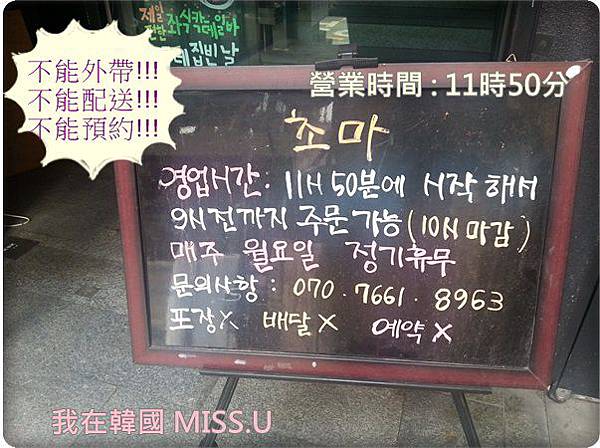 제일
좌식칵테일바
테집빈날
不能外帶!!!
不能配送!!!
不能預約!!!
營業時間 : 11時50分
초마
영업시간 : 11시 50분에 시작해서
9시전까지 주문가능 (10시마감)
매주 월요일 정기휴무
문의사항 : 070 . 7661 . 8963
포장X 배달X 예약X
我在韓國 MISS.U